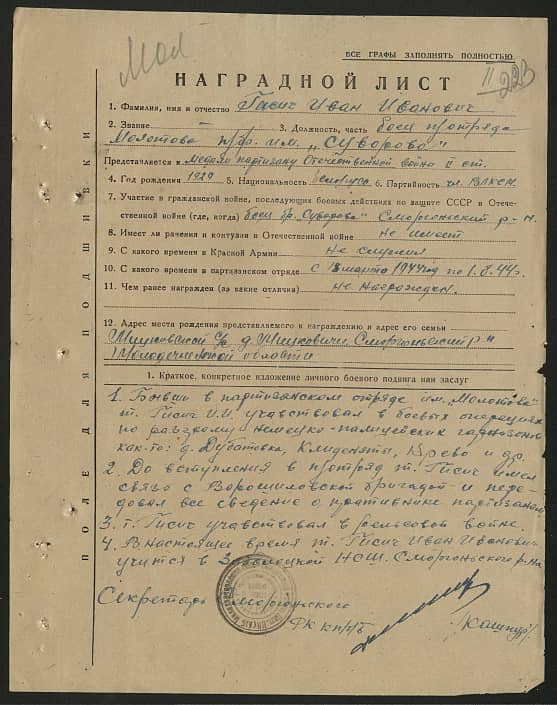 Мол
ВСЕ ГРАФЫ ЗАПОЛНЯТЬ ПОЛНОСТЬЮ
II 223
НАГРАДНОЙ ЛИСТ
1. Фамилия, имя и отчество Гисич Иван Иванович
2. Звание — 3. Должность, часть Боец п/отряда
Молотова п/бр. им. „Суворова"
Представляется к медали партизану Отечественной войны II ст.
4. Год рождения 1929 5. Национальность белорус 6. Партийность чл. ВЛКСМ
7. Участие в гражданской войне, последующих боевых действиях по защите СССР и Отече-
ственной войне (где, когда) боец бр. „Суворова" Сморгоньский р-н.
8. Имеет ли ранения и контузии в Отечественной войне не имеет
9. С какого времени в Красной Армии не служил
10. С какого времени в партизанском отряде с 13 марта 1944 год по 1.8.44г.
11. Чем ранее награжден (за какие отличия) не награжден.
12. Адрес места рождения представляемого к награждению и адрес его семьи
с/с д. Жидковичи Сморгоньский р-н
Молодечненской области
1. Краткое, конкретное изложение личного боевого подвига или заслуг
1. Бывши в партизанском отряде им. „Молотова"
т. Гисич И.И. учавствовал в боевых операциях
по разгрому немецко-полицейских гарнизонов
как-то: д. Дубатовка, Клиденяты, Крево и др.
2. До вступления в п/отряд т. Гисич имел
связь с Ворошиловской бригадой и пере-
довал все сведение о противнике партизанам
3. т. Гисич учавствовал в рельсовой войне.
4. В настоящее время т. Гисич Иван Иванович
учится в НСШ. Сморгоньского р-на
Секретарь Сморгонского
РК КП/б/Б /Кашпур/
ПОЛЕ ДЛЯ ПОДШИВКИ